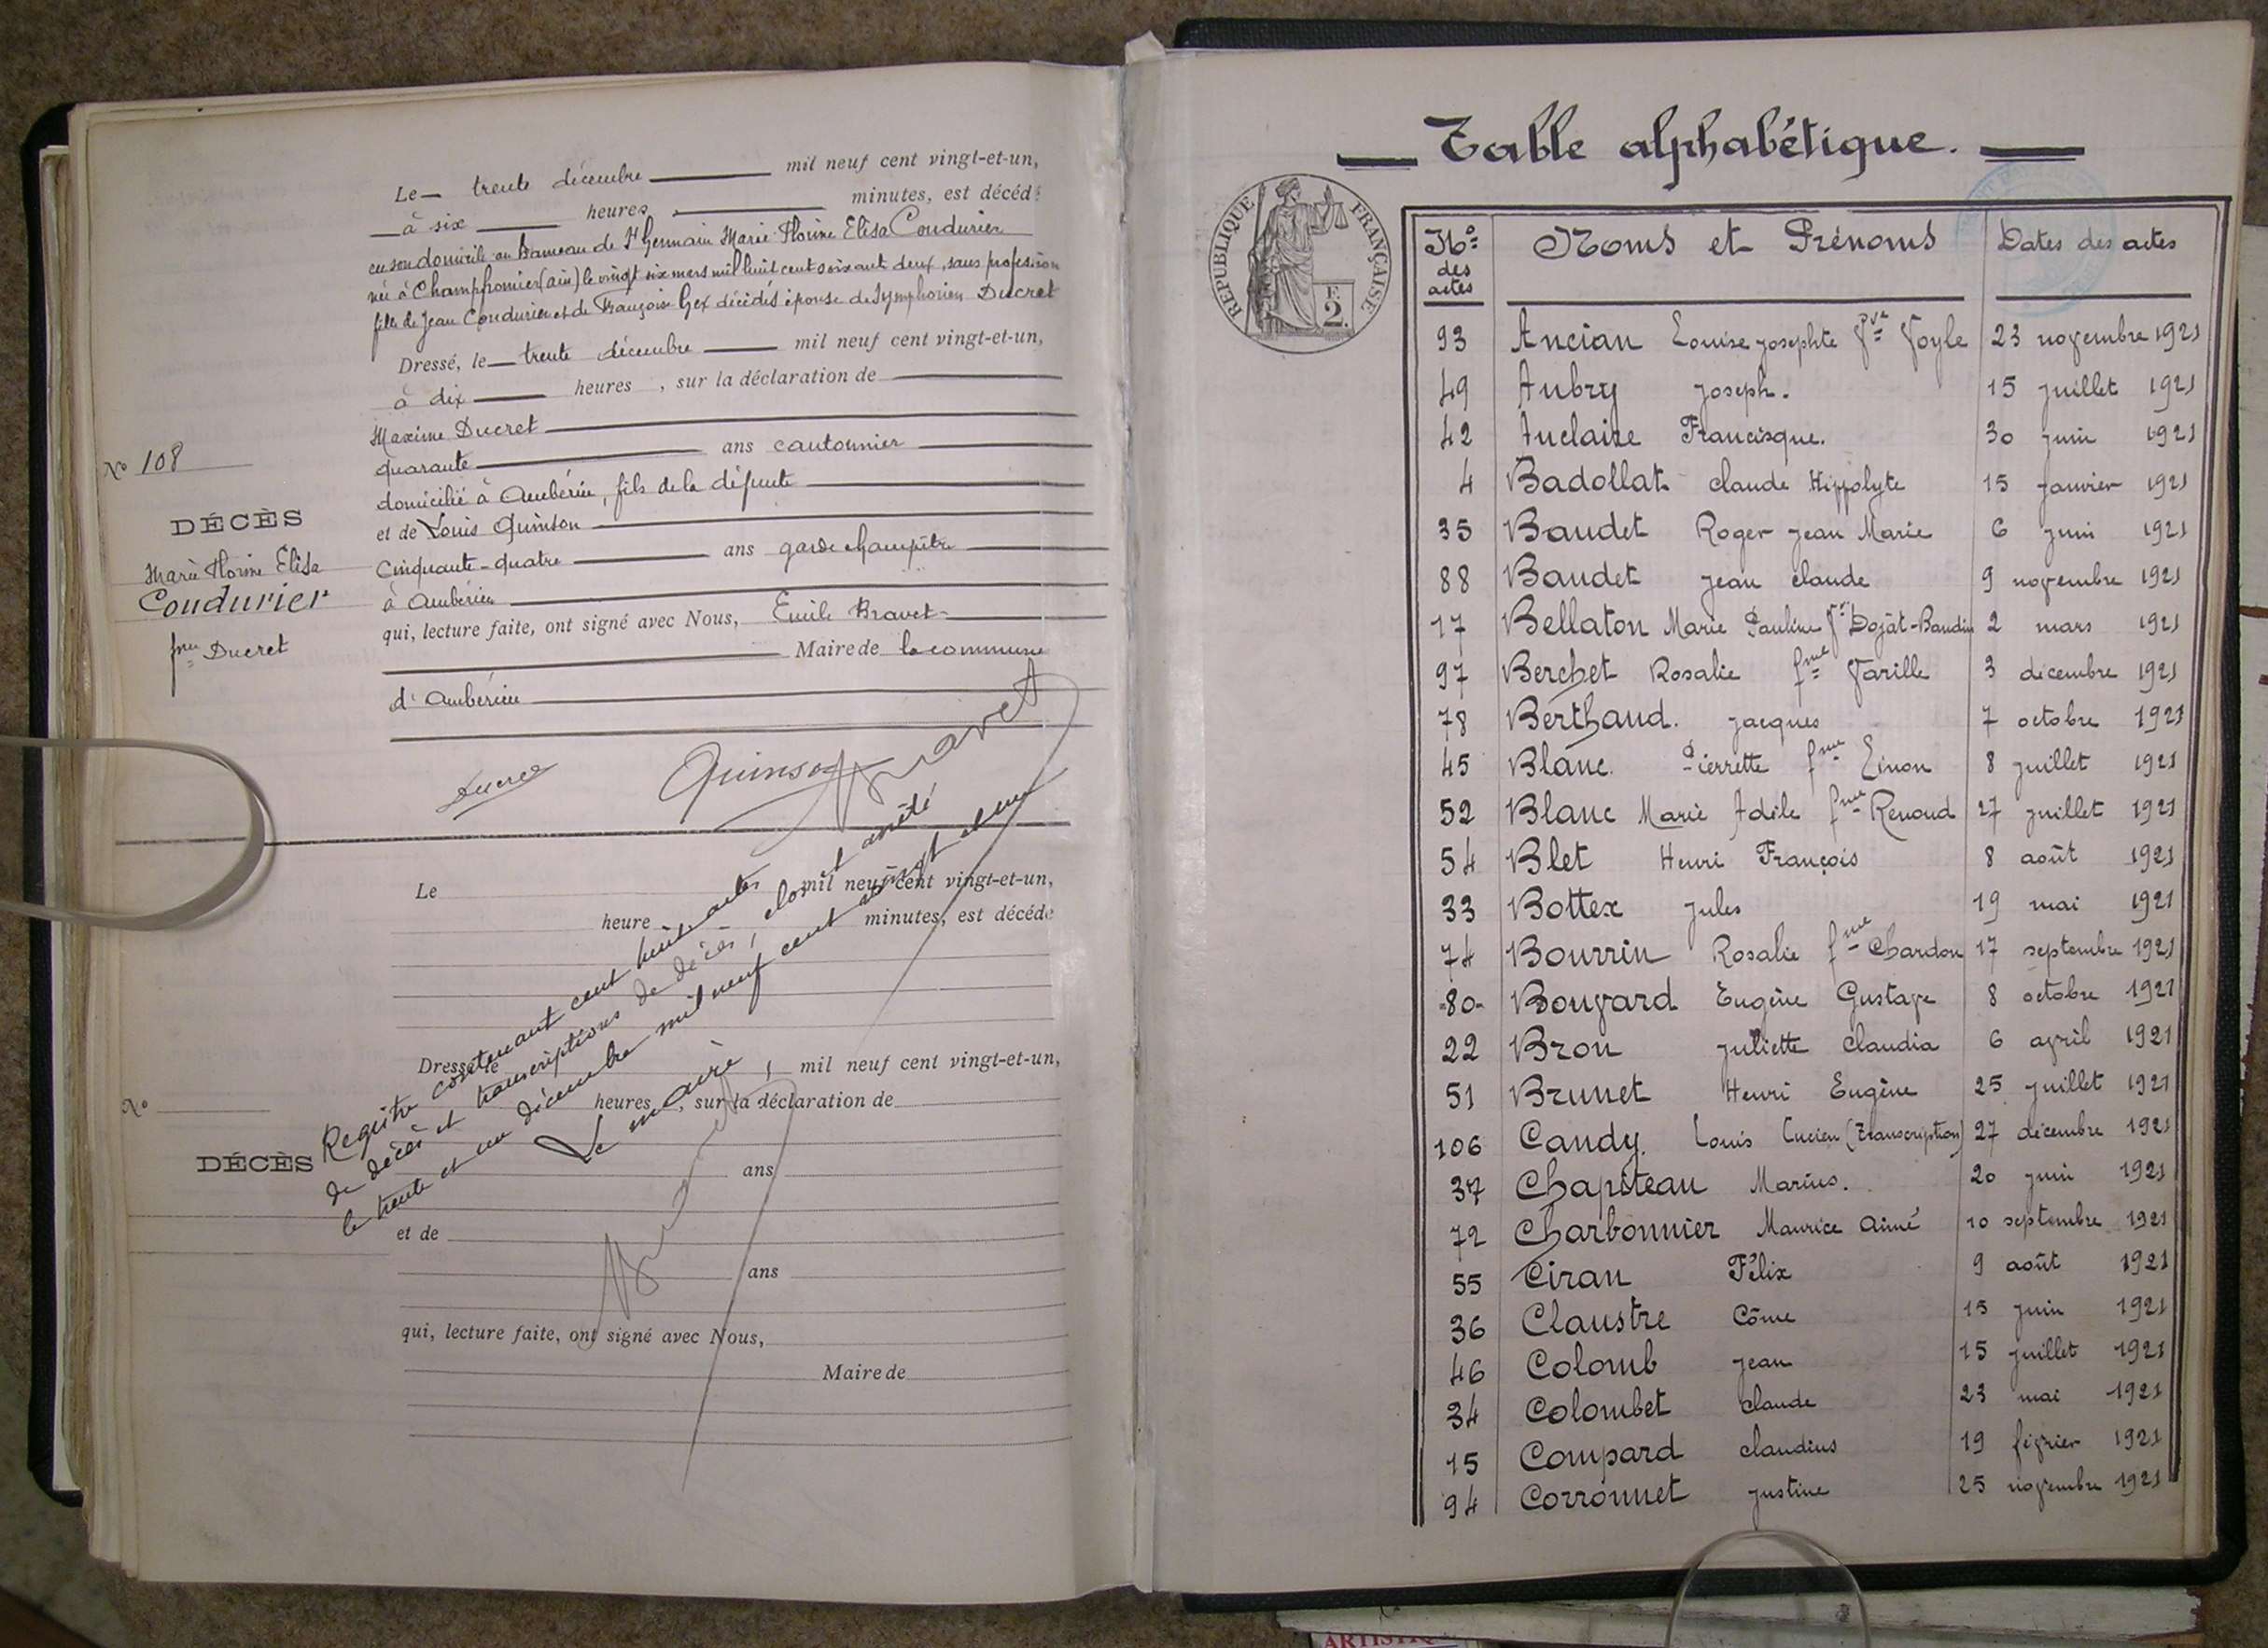 Le trente décembre mil neuf cent vingt-et-un,
à six heures minutes, est décédé
en son domicile au hameau de St Germain Marie Florine Elisa Condurier
née à Champfromier (ain) le vingt six mars mil huit cent soixant deux, sans profession
fille de Jean Condurier et de Françoise Gex décédés épouse de Symphorien Ducret
Dressé, le trente décembre mil neuf cent vingt-et-un,
à dix heures, sur la déclaration de
Maxime Ducret
quarante ans cantonnier
domicilié à Ambérieu, fils de la défunte
et de Louis Quinson
Cinquante-quatre ans garde champêtre
à Ambérieu
qui, lecture faite, ont signé avec Nous, Emile Bravet
Maire de la commune
d'Ambérieu
No 108
DÉCÈS
Marie Florine Elisa
Condurier
fme Ducret
Ducret Quinson Bravet
Le mil neuf cent vingt-et-un,
heure minutes, est décédé
Dressé, le mil neuf cent vingt-et-un,
heures, sur la déclaration de
No
DÉCÈS
ans
et de
ans
qui, lecture faite, ont signé avec Nous,
Maire de
Registre contenant cent huit actes
de décès et transcriptions de décès, clos et arrêté
le trente et un décembre mil neuf cent vingt et un
Le maire,
Bravet
Table alphabétique.
RÉPUBLIQUE FRANÇAISE
F.
2.
Nos des actes Noms et Prénoms Dates des actes
93 Ancian Louise Josephte Vve Voyle 23 novembre 1921
49 Aubry Joseph. 15 juillet 1921
42 Auclaire Francisque. 30 juin 1921
4 Badollat Claude Hippolyte 15 janvier 1921
35 Baudet Roger Jean Marie 6 juin 1921
88 Baudet Jean Claude 9 novembre 1921
17 Bellaton Marie Pauline Vve Dojat-Baudin 2 mars 1921
97 Berchet Rosalie fme Varille 3 décembre 1921
78 Berthaud. Jacques 7 octobre 1921
45 Blanc. Pierrette fme Linon 8 juillet 1921
52 Blanc Marie Adèle fme Renoud 27 juillet 1921
54 Blet Henri François 8 août 1921
33 Bottex Jules 19 mai 1921
74 Bourrin Rosalie fme Chardon 17 septembre 1921
80 Bouvard Eugène Gustave 8 octobre 1921
22 Bron Juliette Claudia 6 avril 1921
51 Brunet Henri Eugène 25 juillet 1921
106 Candy. Louis Lucien (Transcription) 27 décembre 1921
37 Chapiteau Marius. 20 juin 1921
72 Charbonnier Maurice Aimé 10 septembre 1921
55 Ciran Félix 9 août 1921
36 Claustre Côme 15 juin 1921
46 Colomb Jean 15 juillet 1921
34 Colombet Claude 23 mai 1921
15 Compard Claudius 19 février 1921
94 Corronnet Justine 25 novembre 1921